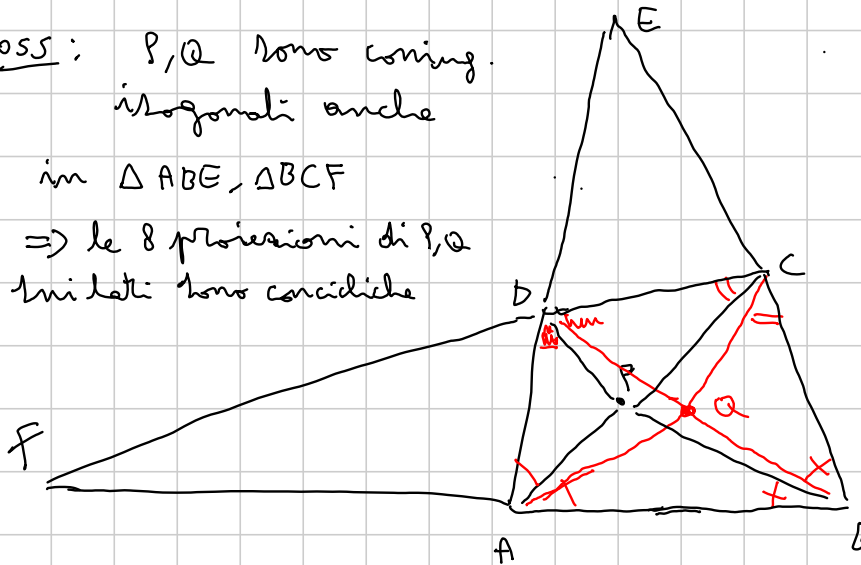 oss: P,Q sono coniug.
isogonali anche
in △ABE, △BCF
=> le 8 proiezioni di P,Q
sui lati sono concicliche
E
D
C
P
Q
F
A